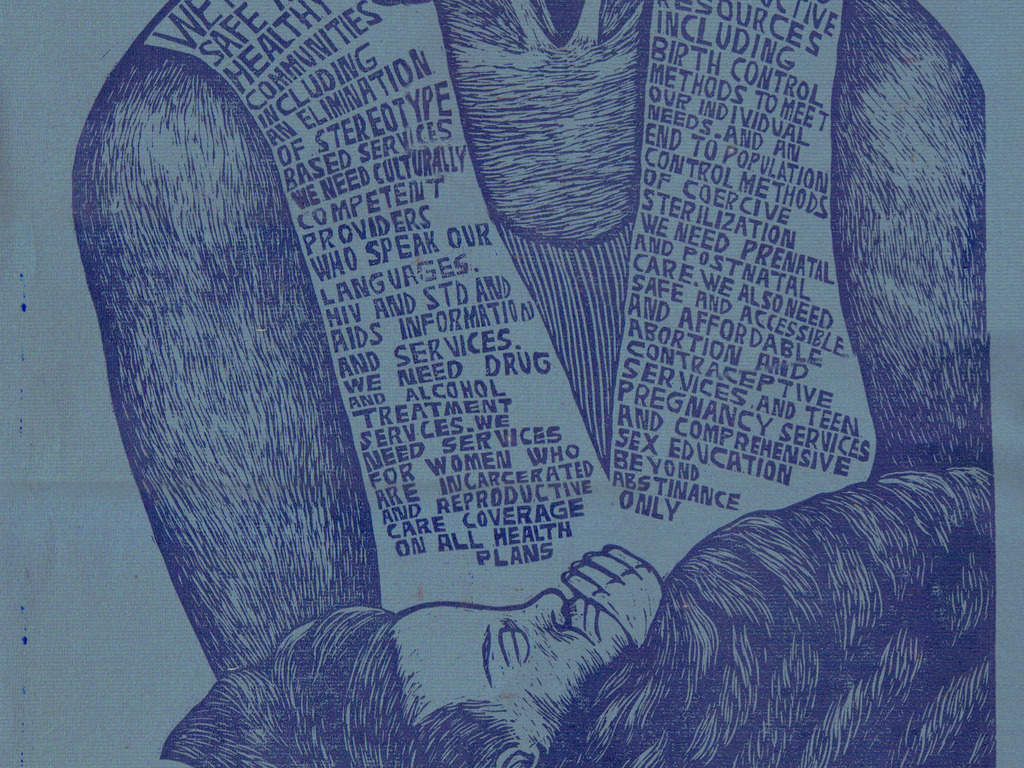 WE
SAFE
HEALTHY
COMMUNITIES
INCLUDING
AN ELIMINATION
OF STEREOTYPE
BASED SERVICES
WE NEED CULTURALLY
COMPETENT
PROVIDERS
WHO SPEAK OUR
LANGUAGES.
HIV AND STD AND
AIDS INFORMATION
AND SERVICES.
WE NEED DRUG
AND ALCOHOL
TREATMENT
SERVCES.WE
NEED SERVICES
FOR WOMEN WHO
ARE INCARCERATED
AND REPRODUCTIVE
CARE COVERAGE
ON ALL HEALTH
PLANS
RESOURCES
INCLUDING
BIRTH CONTROL
METHODS TO MEET
OUR INDIVIDUAL
NEEDS. AND AN
END TO POPULATION
CONTROL METHODS
OF COERCIVE
STERILIZATION
WE NEED PRENATAL
AND POSTNATAL
CARE. WE ALSO NEED
SAFE AND ACCESSIBLE
AND AFFORDABLE
ABORTION AND
CONTRACEPTIVE
SERVICES, AND TEEN
PREGNANCY SERVICES
AND COMPREHENSIVE
SEX EDUCATION
BEYOND
ABSTINANCE
ONLY